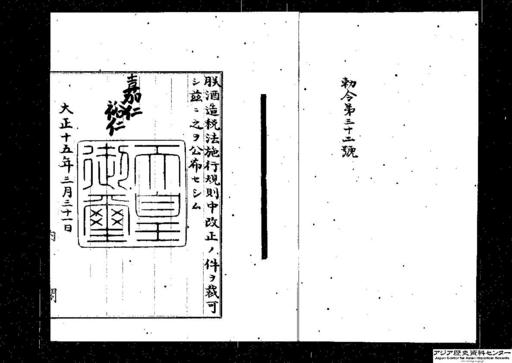 勅令第三十二號
朕酒造税法施行規則中改正ノ件ヲ裁可
シ茲ニ之ヲ公布セシム
嘉仁
裕仁
天皇
御璽
大正十五年三月三十一日
内閣
アジア歴史資料センター
Japan Center for Asian Historical Records